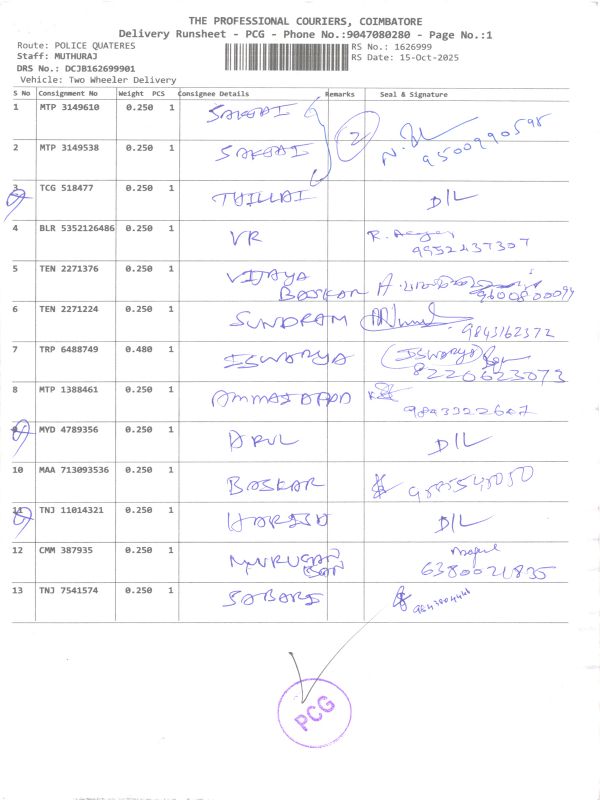 THE PROFESSIONAL COURIERS, COIMBATORE
Delivery Runsheet - PCG - Phone No.:9047080280 - Page No.:1
Route: POLICE QUATERES RS No.: 1626999
Staff: MUTHURAJ RS Date: 15-Oct-2025
DRS No.: DCJB162699901
Vehicle: Two Wheeler Delivery
S No Consignment No Weight PCS Consignee Details Remarks Seal & Signature
1 MTP 3149610 0.250 1 SAKTHI
2 MTP 3149538 0.250 1 SAKTHI 2 9500990598
3 TCG 518477 0.250 1 THILLAI D/L
4 BLR 5352126486 0.250 1 VR R.
9952437307
5 TEN 2271376 0.250 1 VIJAYA
BASKAR 9600800094
6 TEN 2271224 0.250 1 SUNDRAM 9843162372
7 TRP 6488749 0.480 1 ISWARYA (ISWARYA)
8220623073
8 MTP 1388461 0.250 1
9843322607
9 MYD 4789356 0.250 1 ARUL D/L
10 MAA 713093536 0.250 1 BASKAR
11 TNJ 11014321 0.250 1 HARISH D/L
12 CMM 387935 0.250 1 MURUGAN
6380021835
13 TNJ 7541574 0.250 1 SABARI
PCG